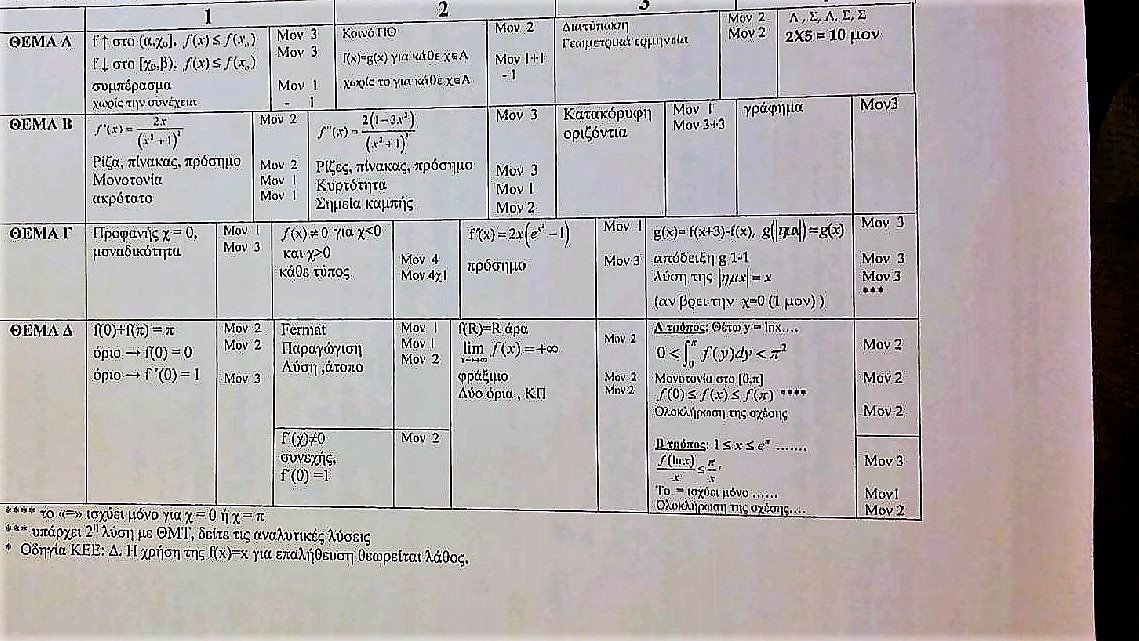 1 2 3
ΘΕΜΑ Α
f ↑ στο (α,χ₀], f(x) ≤ f(x₀)
f ↓ στο [χ₀,β), f(x) ≤ f(x₀)
συμπέρασμα
χωρίς την συνέχεια
Μον 3
Μον 3
Μον 1
- 1
Κοινό ΠΟ
f(x)=g(x) για κάθε χ∈Α
χωρίς το για κάθε χ∈Α
Μον 2
Μον 1+1
- 1
Διατύπωση
Γεωμετρική ερμηνεία
Μον 2
Μον 2
Λ, Σ, Λ, Σ, Σ
2Χ5 = 10 μον
ΘΕΜΑ Β
f'(x) = 2x / (x²+1)²
Ρίζα, πίνακας, πρόσημο
Μονοτονία
ακρότατο
Μον 2
Μον 2
Μον 1
Μον 1
f''(x) = 2(1-3x²) / (x²+1)³
Ρίζες, πίνακας, πρόσημο
Κυρτότητα
Σημεία καμπής
Μον 3
Μον 3
Μον 1
Μον 2
Κατακόρυφη
οριζόντια
Μον 1
Μον 3+3
γράφημα
Μον3
ΘΕΜΑ Γ
Προφανής χ = 0,
μοναδικότητα
Μον 1
Μον 3
f(x) ≠ 0 για χ<0
και χ>0
κάθε τύπος
Μον 4
Μον 4χ1
f'(x) = 2x(e^(x²) -1)
πρόσημο
Μον 1
Μον 3
g(x)= f(x+3)-f(x), g(|ημx|)=g(x)
απόδειξη g 1-1
λύση της |ημx| = x
(αν βρει την χ=0 (1 μον) )
Μον 3
Μον 3
Μον 3
***
ΘΕΜΑ Δ
f(0)+f(π) = π
όριο → f(0) = 0
όριο → f΄(0) = 1
Μον 2
Μον 2
Μον 3
Fermat
Παραγώγιση
Λύση ,άτοπο
Μον 1
Μον 1
Μον 2
f΄(χ)≠0
συνεχής,
f΄(0) =1
Μον 2
f(R)=R άρα
lim f(x) = +∞
φράξιμο
Δύο όρια , ΚΠ
Μον 2
Μον 2
Μον 2
Α τρόπος: Θέτω y = lnx….
0 < ∫₀^π f(y)dy < π²
Μονοτονία στο [0,π]
f(0) ≤ f(x) ≤ f(π) ****
Ολοκλήρωση της σχέσης
Μον 2
Μον 2
Μον 2
Β τρόπος: 1 ≤ x ≤ e^π …….
f(lnx)/x ≤ π/x,
Το = ισχύει μόνο ……
Ολοκλήρωση της σχέσης….
Μον 3
Μον1
Μον 2
**** το «=» ισχύει μόνο για χ = 0 ή χ = π
*** υπάρχει 2η λύση με ΘΜΤ, δείτε τις αναλυτικές λύσεις
* Οδηγία ΚΕΕ: Δ. Η χρήση της f(x)=x για επαλήθευση θεωρείται λάθος.